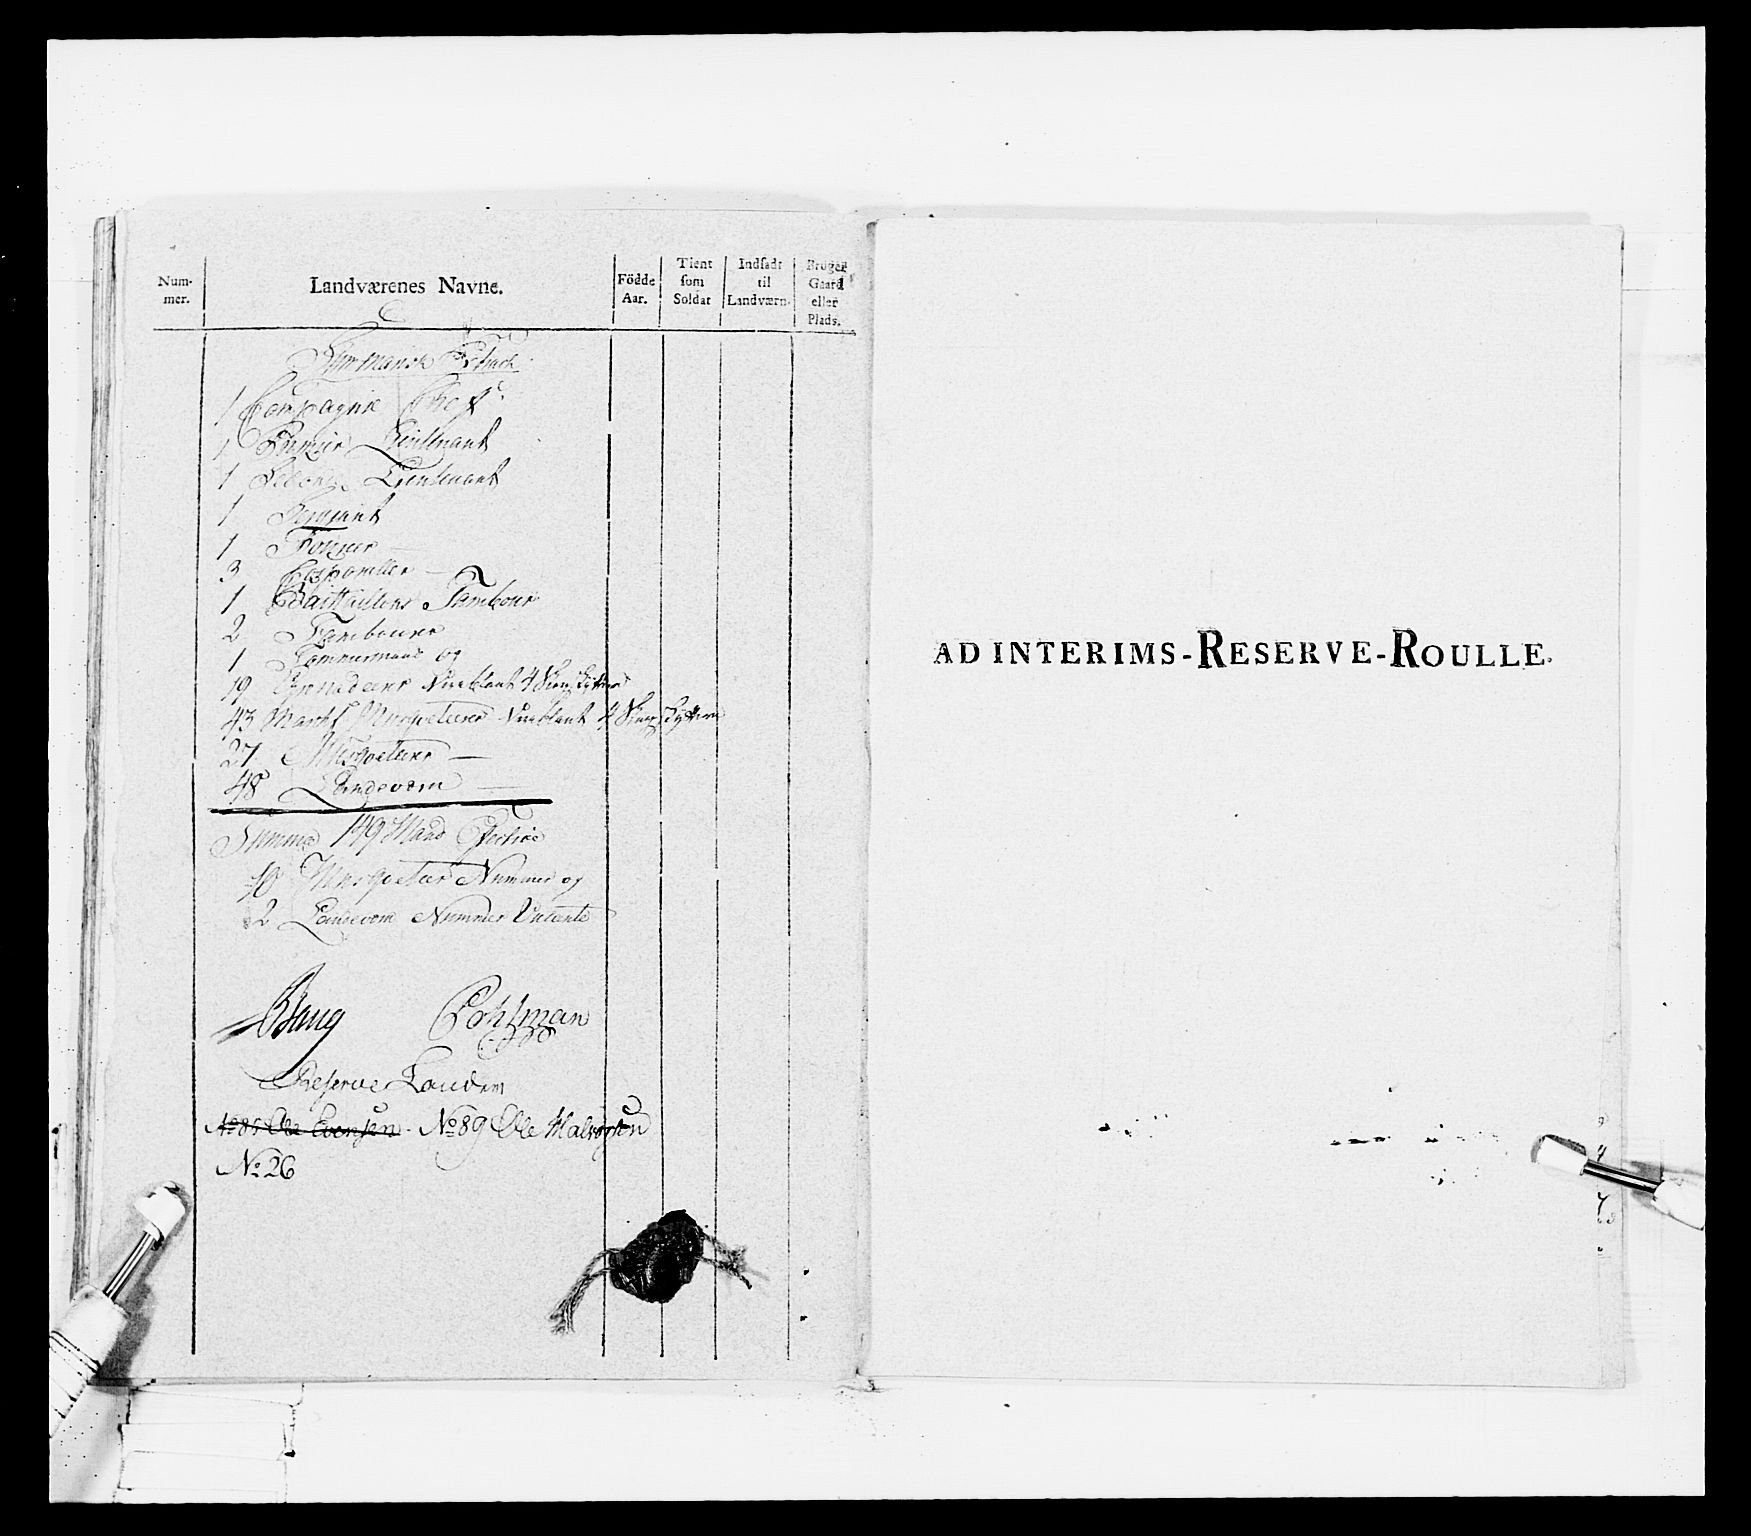 Num-
mer.
Landværenes Navne.
Födde
Aar.
Tient
som
Soldat
Indsadt
til
Landværn.
Bruger
Gaard
eller
Plads.
Summarisk
1 Compagnie Chef
1 Premier Lieutenant
1 Second Lieutenant
1 Sergeant
1 Fourer
3 Corporaller
1 Battallions Tambour
2 Tambourer
1 Tømmermand og
19
43 Musqveterer
27 Musqveterer
48 Landeværn
Summa 149 Mand Effective
10 Musqveteer Nummer og
2 Landevœrn Nummer Vacante
Haug Pohlman
Reserve Landværn
Ole Evensen No 89 Ole Halvorsen
No 26
AD INTERIMS-RESERVE-ROULLE.